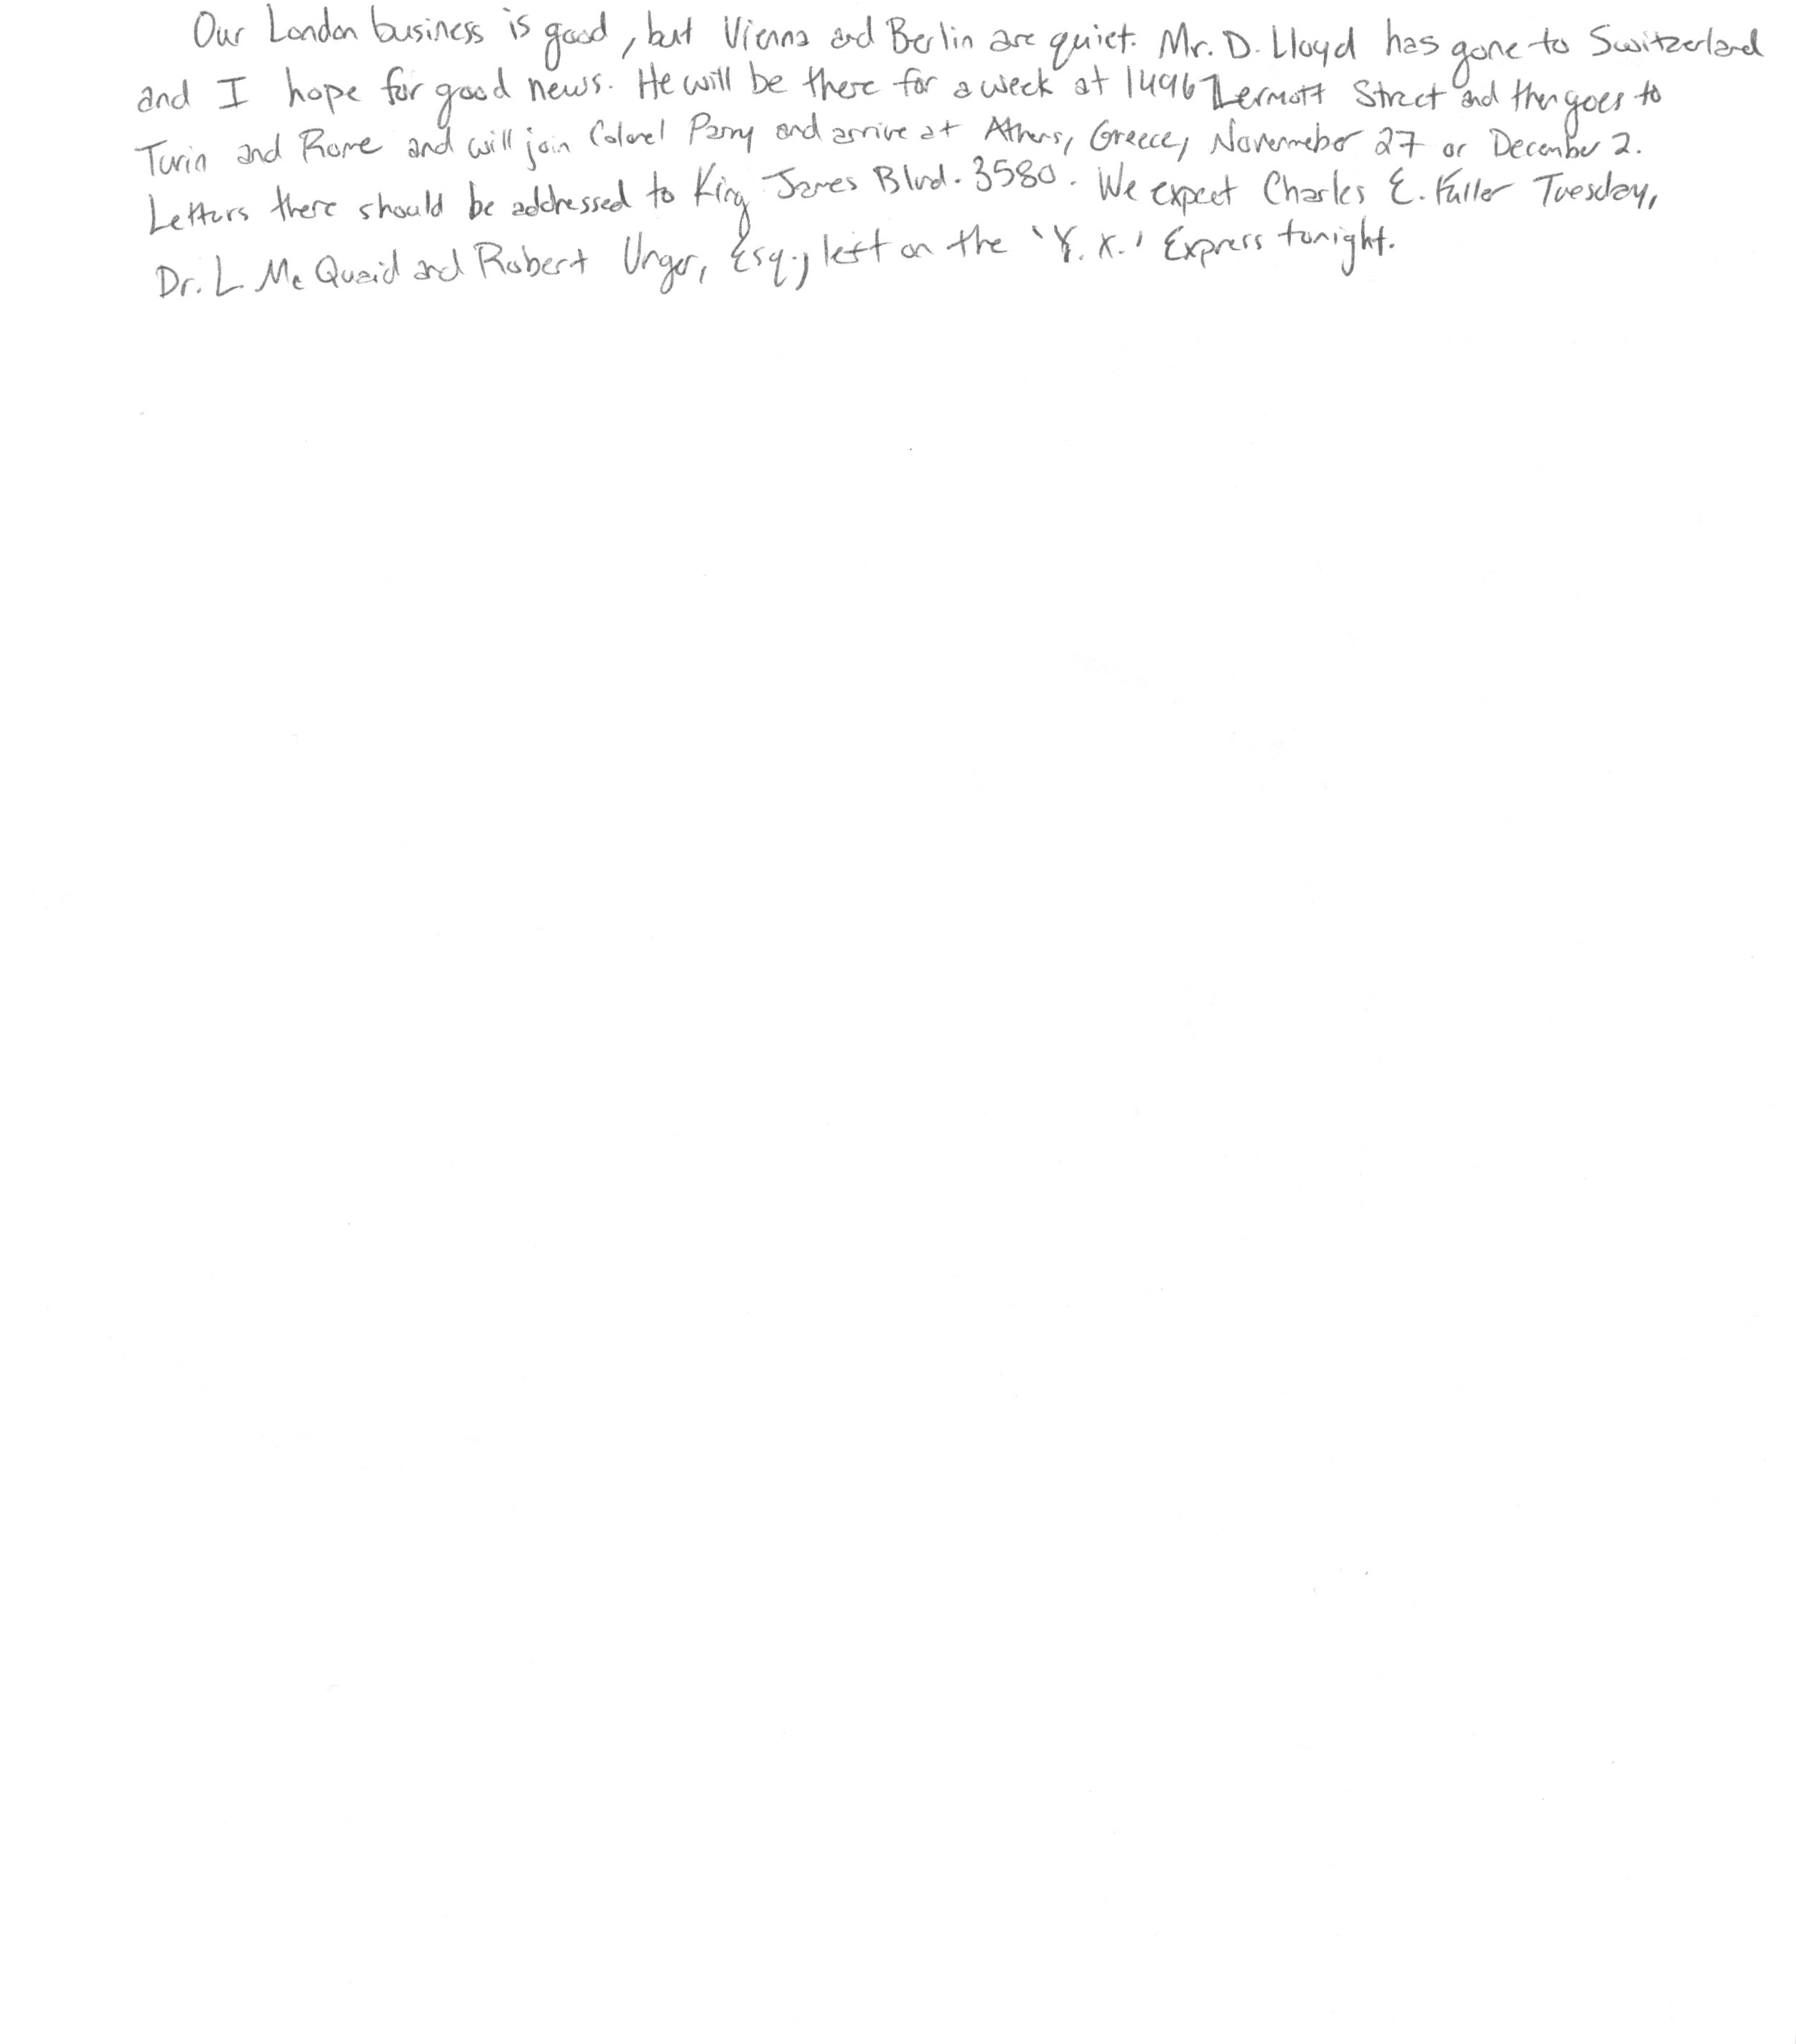 Our London business is good, but Vienna and Berlin are quiet. Mr. D. Lloyd has gone to Switzerland
and I hope for good news. He will be there for a week at 1496 Zermott Street and then goes to
Turin and Rome and will join Colonel Parry and arrive at Athens, Greece, Novermeber 27 or December 2.
Letters there should be addressed to King James Blvd. 3580. We expect Charles E. Fuller Tuesday,
Dr. L McQuaid and Robert Unger, Esq., left on the 'Y. X.' Express tonight.